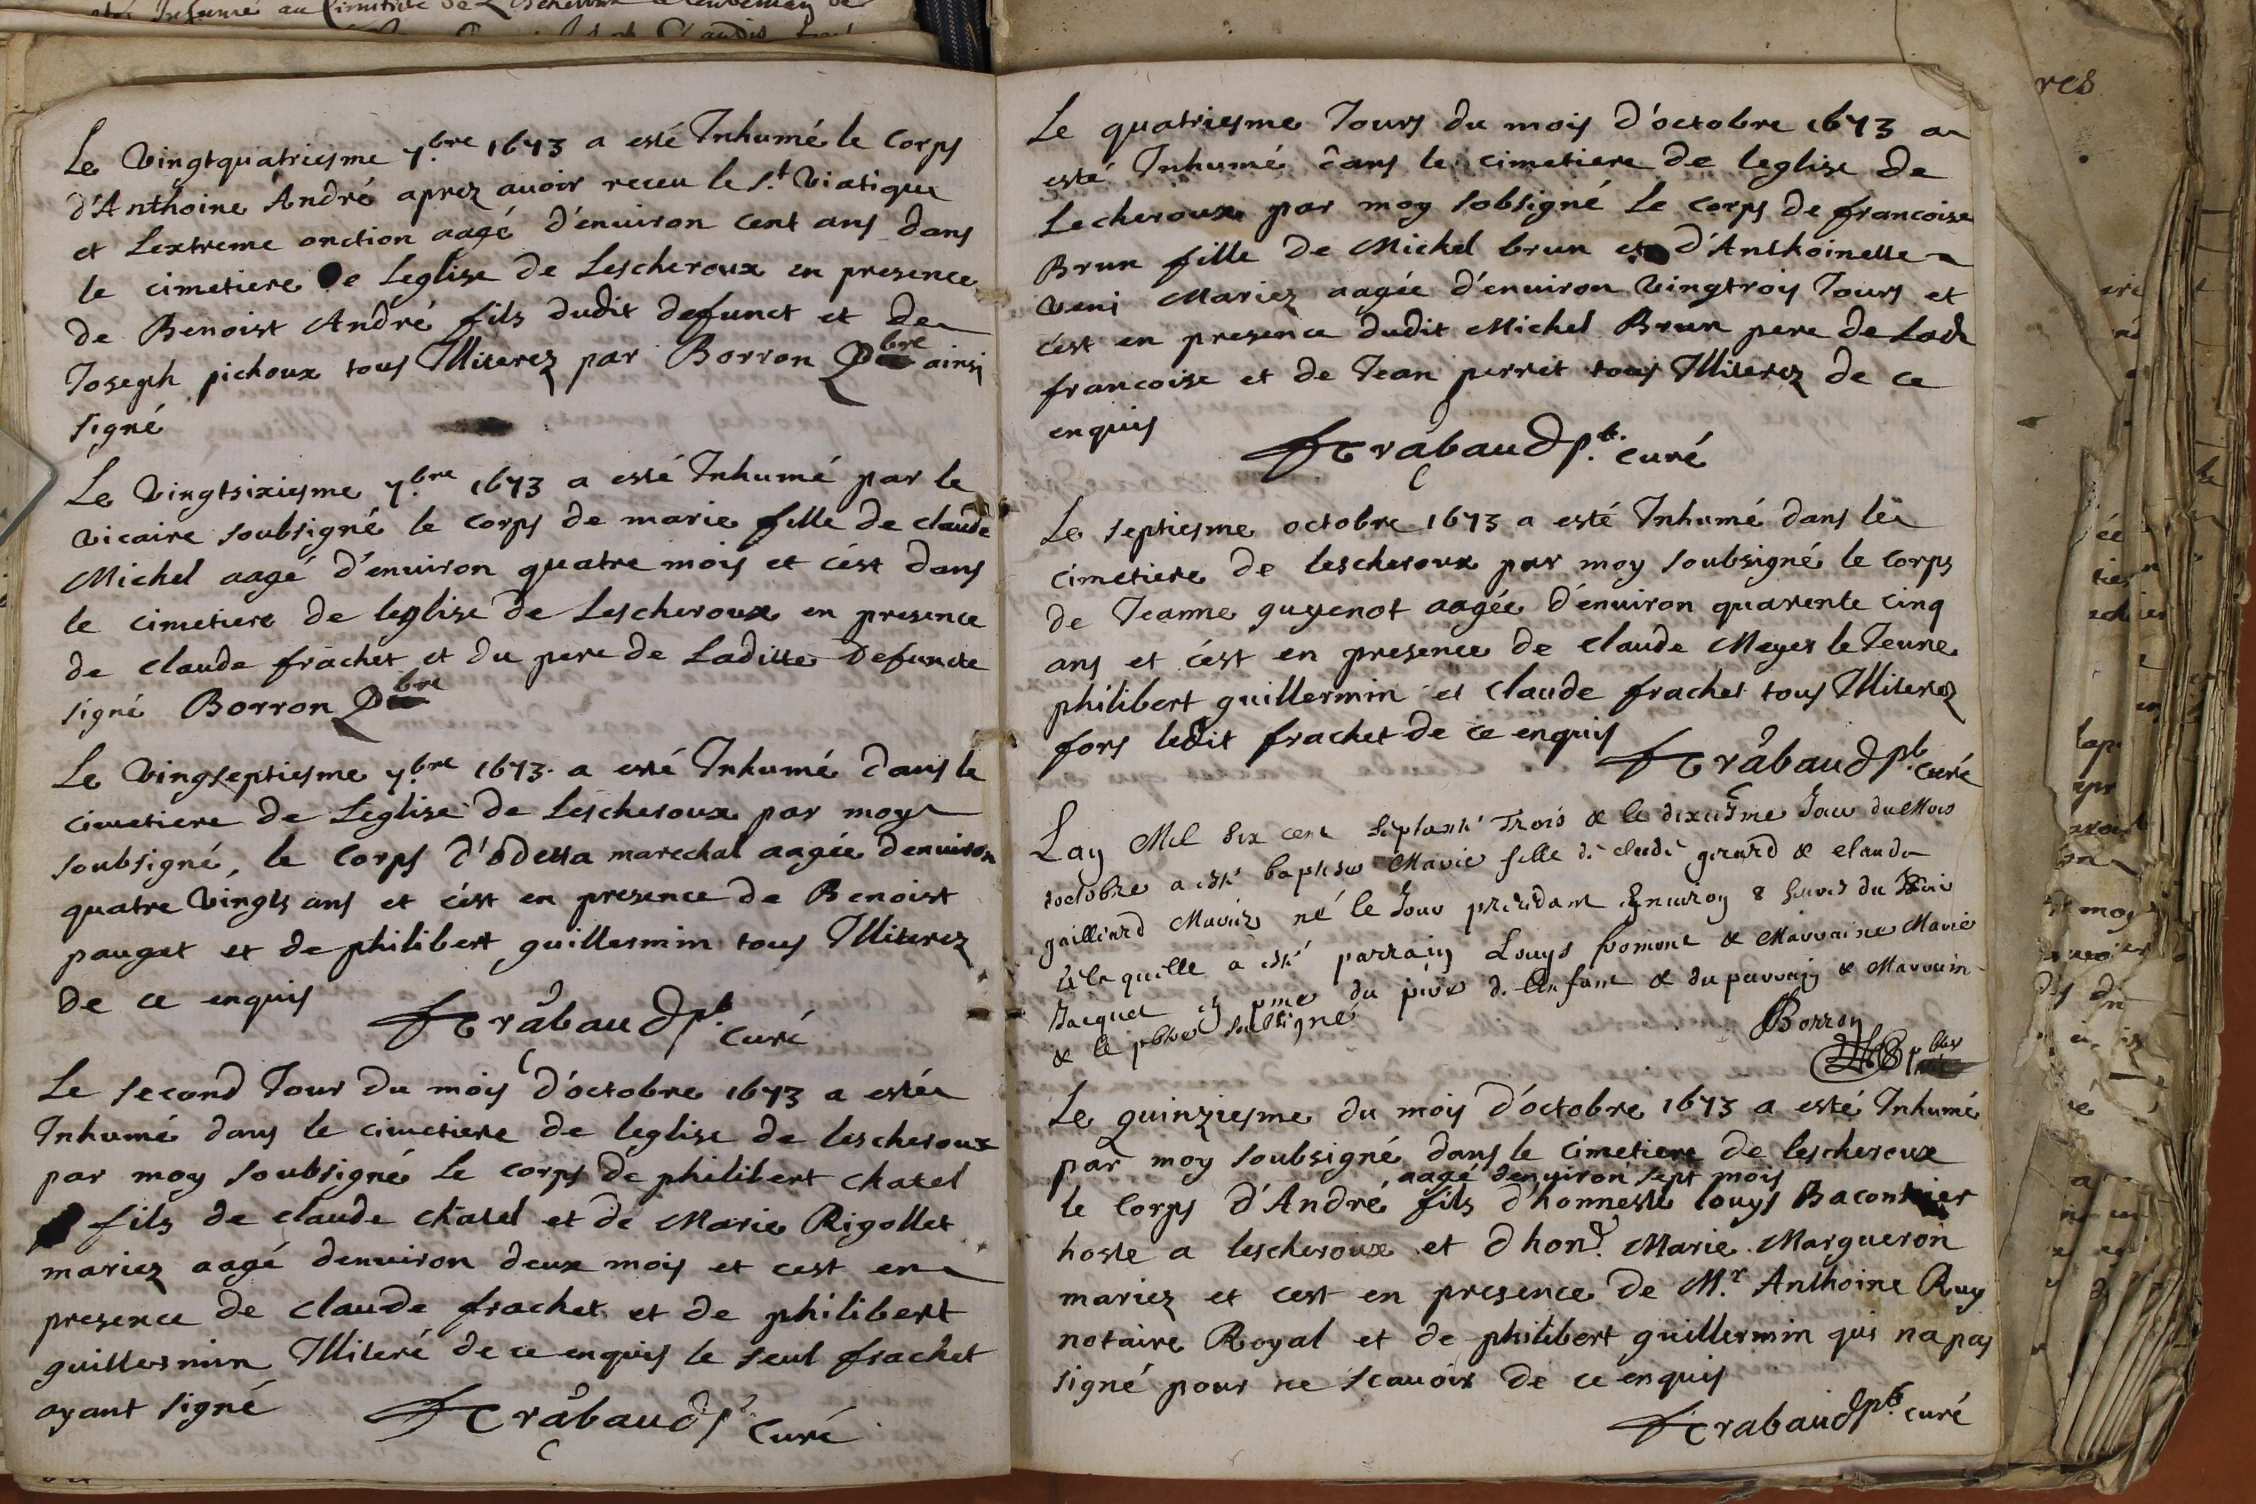 Le vingtquatriesme 7.bre 1673 a esté Inhumé le Corps
d'Anthoine André aprez auoir receu le s.t viatique
et Lextreme onction aagé d'enuiron cent ans dans
le cimetiere de Leglise de Lescheroux en presence
de Benoist André fils dudit defunct et de
Joseph pichoux tous Illiterez par Borron Pbre ainsi
signé
Le vingtsixiesme 7.bre 1673 a esté Inhumé par le
vicaire soubsigné le corps de marie fille de claude
Michel aagé d'enuiron quatre mois et c'est dans
le cimetiere de leglise de Lescheroux en presence
de claude frachet et du pere de Laditte Defuncte
signé Borron Pbre
Le vingseptiesme 7.bre 1673. a esté Inhumé dans le
cimetiere de Leglise de Lescheroux par moy
soubsigné, le corps d'odetta marechal aagée denuiron
quatre vingts ans et c'est en presence de Benoist
pauget et de philibert guillermin tous Illiterez
de ce enquis
Trabaud p.b curé
Le second Jour du mois d'octobre 1673 a esté
Inhumé dans le cimetiere de leglise de lescheroux
par moy soubsigné le corps de philibert chatel
fils de claude chatel et de Marie Rigollet
mariez aagé denuiron deux mois et cest en
presence de claude frachet et de philibert
guillermin Illiteré de ce enquis le seul frachet
ayant signé
Trabaud p. curé
Le quatriesme Jours du mois d'octobre 1673 a
esté Inhumé dans le cimetiere de leglise de
Lecheroux par moy sobsigné le corps de francoise
Brun fille de Michel brun et d'Anthoinette
veni Mariez aagée d'enuiron vingtrois Jours et
c'est en presence dudit Michel Brun pere de Lad
francoise et de Jean perret tous Illiterez de ce
enquis
Trabaud p.b. curé
Le septiesme octobre 1673 a esté Inhumé dans le
cimetiere de lescheroux par moy soubsigné le corps
de Jeanne guyenot aagée d'enuiron quarente cinq
ans et c'est en presence de claude Meyer le Jeune
philibert guillermin et claude frachet tous Illiterez
fors ledit frachet de ce enquis
Trabaud p.b curé
Lan Mil six cent septante Trois & le dixiesme Jour du Mois
doctobre a esté baptisee Marie fille de claude girard & clauda
gailliard Mariez né le Jour precedant Enuiron 8 heures du soir
a laquelle a esté parrain Louys fromont & Marraine Marie
Jacquet en pnce du pere de lenfant & du parrain & Marrain
& le pbre soubsigné
Borron
pbre
Le quinziesme du mois d'octobre 1673 a esté Inhumé
par moy soubsigné dans le cimetiere de lescheroux
aagé denuiron sept mois
le corps d'André fils d'honneste louys Baconnier
hoste a lescheroux et dhon.e Marie Margueron
mariez et cest en presence de M.r Anthoine Ruy
notaire Royal et de philibert guillermin qui na pas
signé pour ne scauoir de ce enquis
Trabaud pb. curé